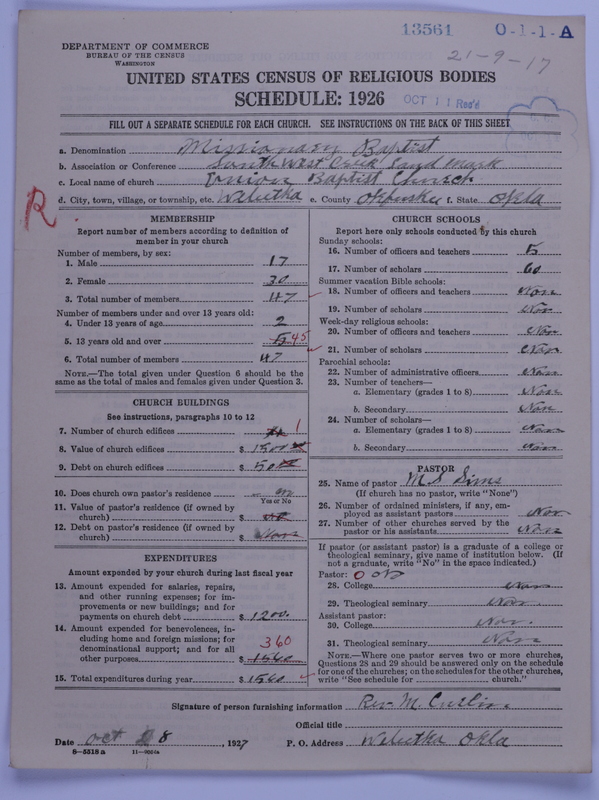 13561 0-1-1-A
DEPARTMENT OF COMMERCE
BUREAU OF THE CENSUS
WASHINGTON
21-9-17
UNITED STATES CENSUS OF RELIGIOUS BODIES
SCHEDULE: 1926
OCT 11 Rec'd
FILL OUT A SEPARATE SCHEDULE FOR EACH CHURCH. SEE INSTRUCTIONS ON THE BACK OF THIS SHEET
a. Denomination Missionary Baptist
b. Association or Conference South West Creek Land Mark
c. Local name of church Union Baptist Church
d. City, town, village, or township, etc. Waleetka e. County Okfuskee f. State Okla
R.
MEMBERSHIP
Report number of members according to definition of
member in your church
Number of members, by sex:
1. Male 17
2. Female 30
3. Total number of members 47
Number of members under and over 13 years old:
4. Under 13 years of age 2
5. 13 years old and over 45
6. Total number of members 47
NOTE.—The total given under Question 6 should be
same as the total of males and females given under Question 3.
CHURCH BUILDINGS
See instructions, paragraphs 10 to 12
7. Number of church edifices 1
8. Value of church edifices $ 1500
9. Debt on church edifices $ 50
10. Does church own pastor's residence no
Yes or No
11. Value of pastor's residence (if owned by
church) $
12. Debt on pastor's residence (if owned by
church) $ Non
EXPENDITURES
Amount expended by your church during last fiscal year
13. Amount expended for salaries, repairs,
and other running expenses; for im-
provements or new buildings; and for
payments on church debt $ 1200.
14. Amount expended for benevolences, in-
cluding home and foreign missions; for
denominational support; and for all
other purposes $ 1560 360
15. Total expenditures during year $ 1560
CHURCH SCHOOLS
Report here only schools conducted by this church
Sunday schools:
16. Number of officers and teachers 5
17. Number of scholars 60
Summer vacation Bible schools:
18. Number of officers and teachers Non
19. Number of scholars Non
Week-day religious schools:
20. Number of officers and teachers Non
21. Number of scholars Non
Parochial schools:
22. Number of administrative officers Non
23. Number of teachers—
a. Elementary (grades 1 to 8) Non
b. Secondary Non
24. Number of scholars—
a. Elementary (grades 1 to 8) Non
b. Secondary Non
PASTOR
25. Name of pastor M. S Sims
(If church has no pastor, write "None")
26. Number of ordained ministers, if any, em-
ployed as assistant pastors Non
27. Number of other churches served by the
pastor or his assistants Non
If pastor (or assistant pastor) is a graduate of a college or
theological seminary, give name of institution below. (If
not a graduate, write "No" in the space indicated.)
Pastor: O
28. College Non
29. Theological seminary Non
Assistant pastor:
30. College Non.
31. Theological seminary Non
NOTE.—Where one pastor serves two or more churches,
Questions 28 and 29 should be answered only on the schedule
for one of the churches; on the schedules for the other churches,
write "See schedule for church."
Signature of person furnishing information Rev. M.
Official title
Date Oct 8, 1927 P. O. Address Waleetka Okla
8—5518 a